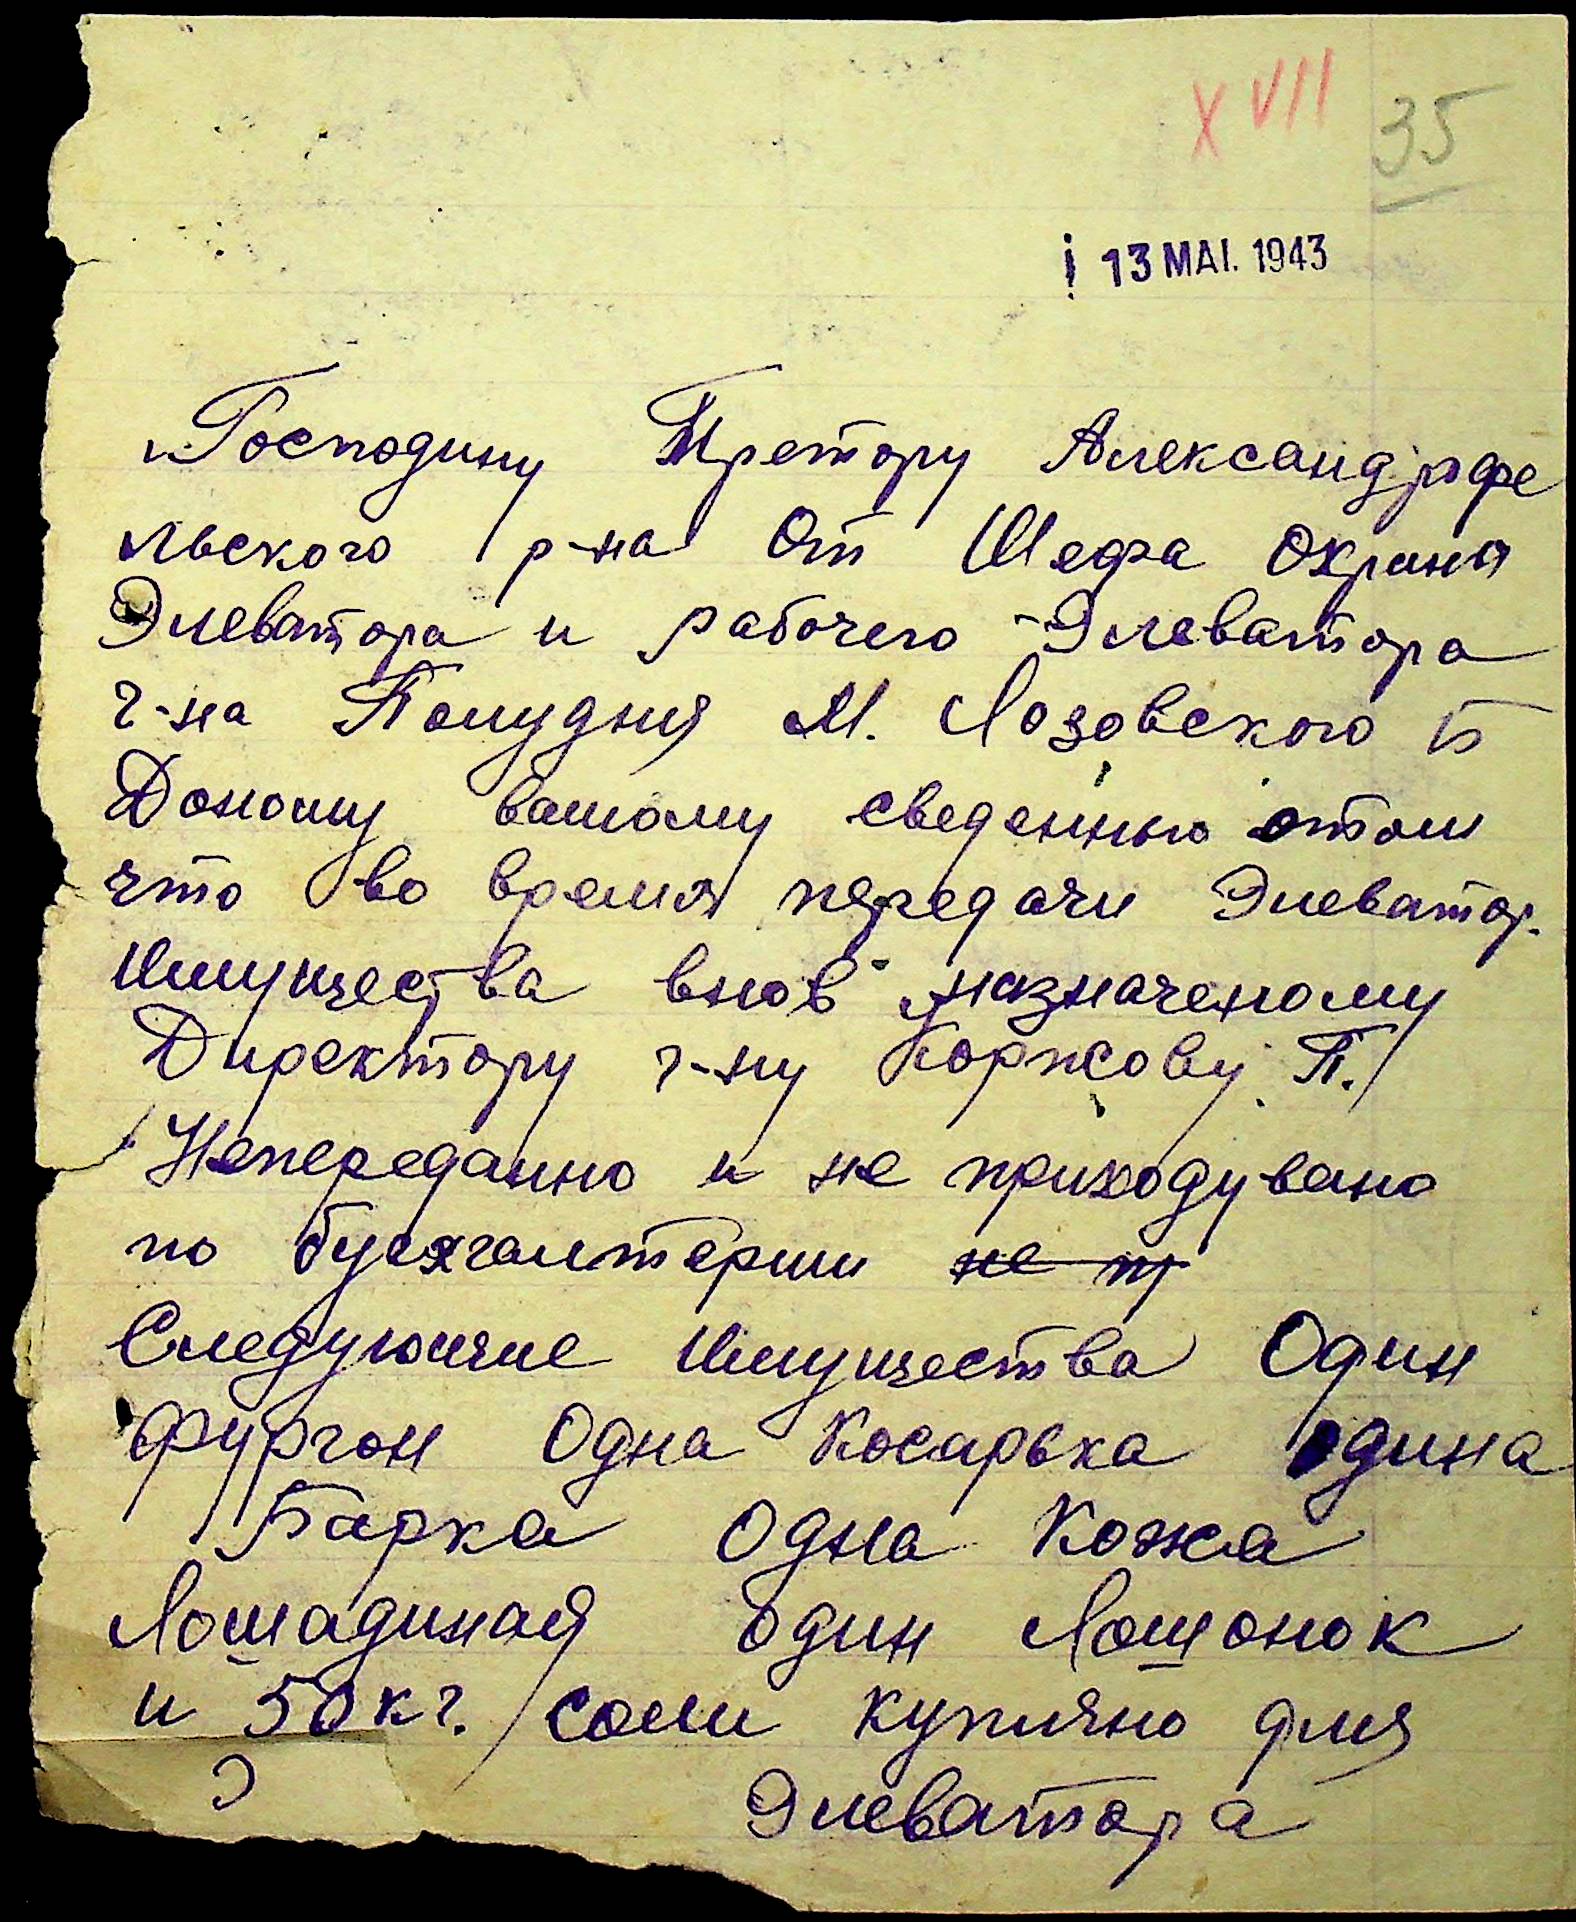 XVII 35
13 MAI. 1943
Господину Претору Александрфе
льского р-на От Шефа Охраны
Элеватора и рабочего Элеватора
г-на Полудня М. Лозовского Б
Доношу вашому сведенью отом
что во время передачи Элеватор.
Имущества внов назначеному
Директору г-ну Коржову П.
Непереданно и не приходувано
по бухгалтерии не пр
Следующие Имущества Один
фургон Одна Косарька одина
Тарка Одна Кожа
Лошадиная один Лошонок
и 50 кг. соли купляно для
Элеватора